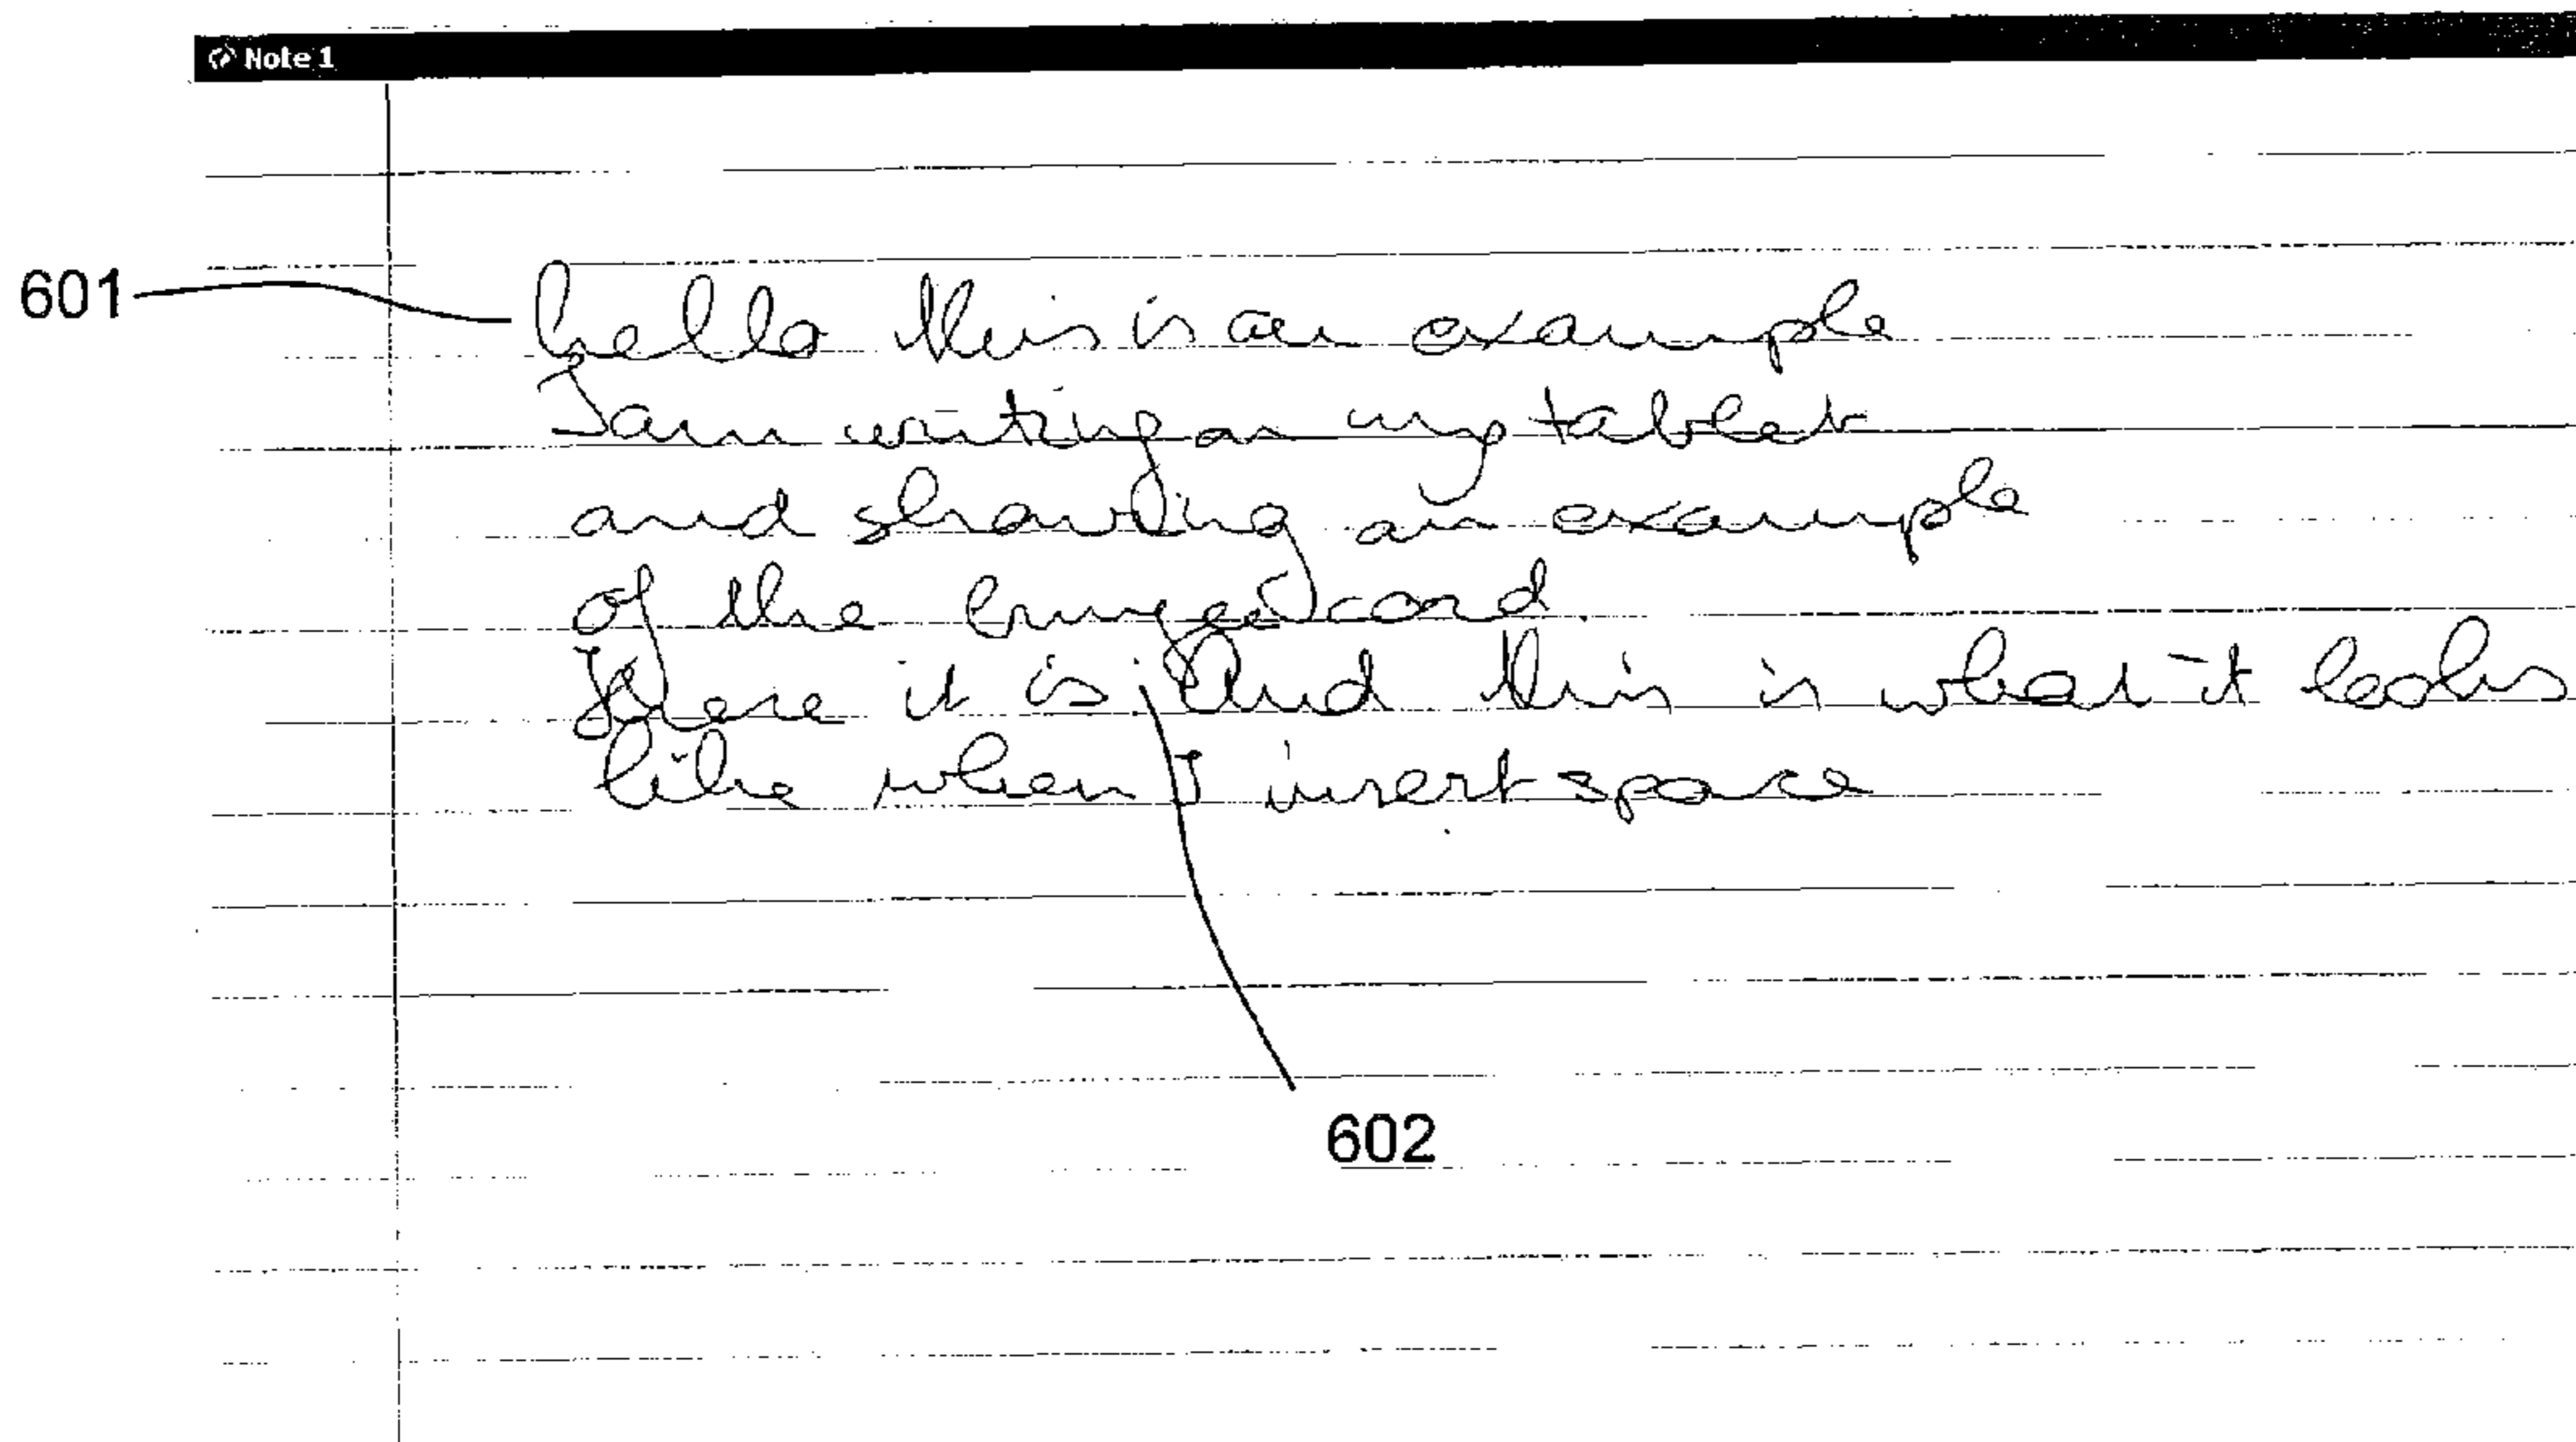 Note 1
601
hello this is an example
I am writing on my tablet
and showing an example
of the card
Here it is. And this is what it looks
like when I insert space
602